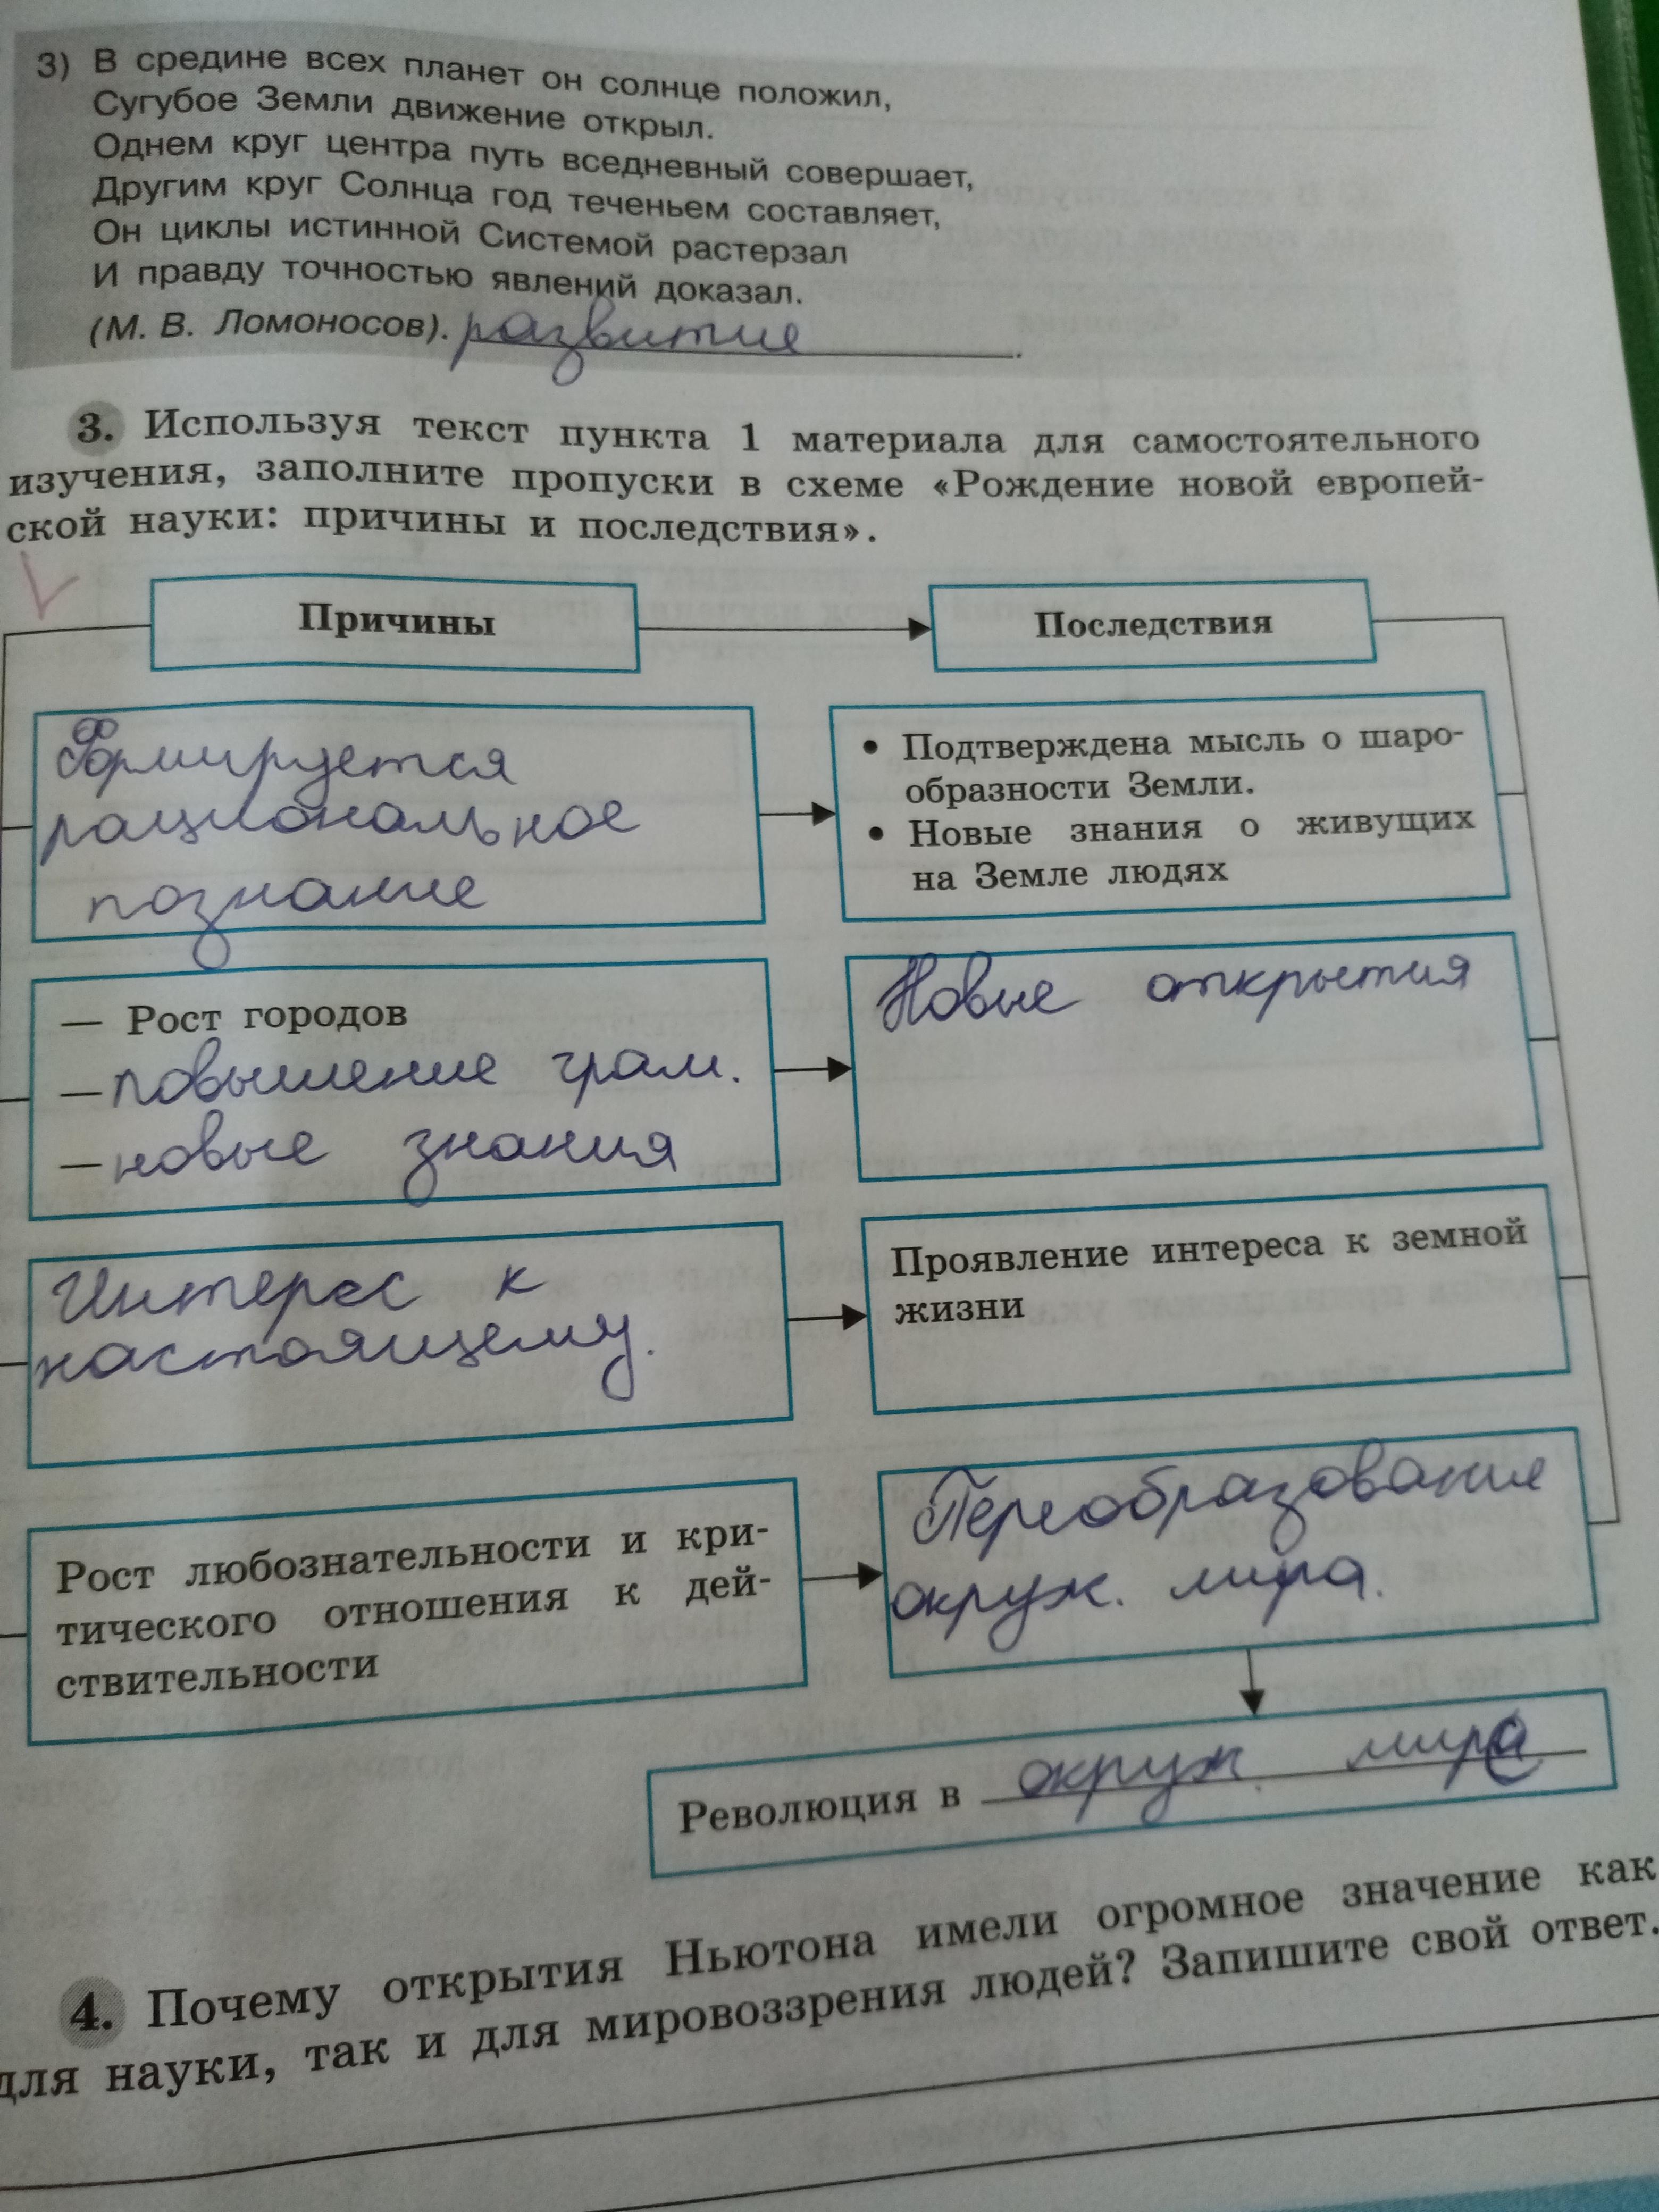 3) В средине всех планет он солнце положил,
Сугубое Земли движение открыл.
Однем круг центра путь вседневный совершает,
Другим круг Солнца год теченьем составляет,
Он циклы истинной Системой растерзал
И правду точностью явлений доказал.
(М. В. Ломоносов). развитие.
3. Используя текст пункта 1 материала для самостоятельного
изучения, заполните пропуски в схеме «Рождение новой европей-
ской науки: причины и последствия».
Причины
Последствия
Формируется
рациональное
познание
• Подтверждена мысль о шаро-
образности Земли.
• Новые знания о живущих
на Земле людях
— Рост городов
— повышение грам.
— новые знания
Новые открытия
Интерес к
настоящему.
Проявление интереса к земной
жизни
Рост любознательности и кри-
тического отношения к дей-
ствительности
Переобразование
окруж. мира.
Революция в окруж. мире
4. Почему открытия Ньютона имели огромное значение как
для науки, так и для мировоззрения людей? Запишите свой ответ.